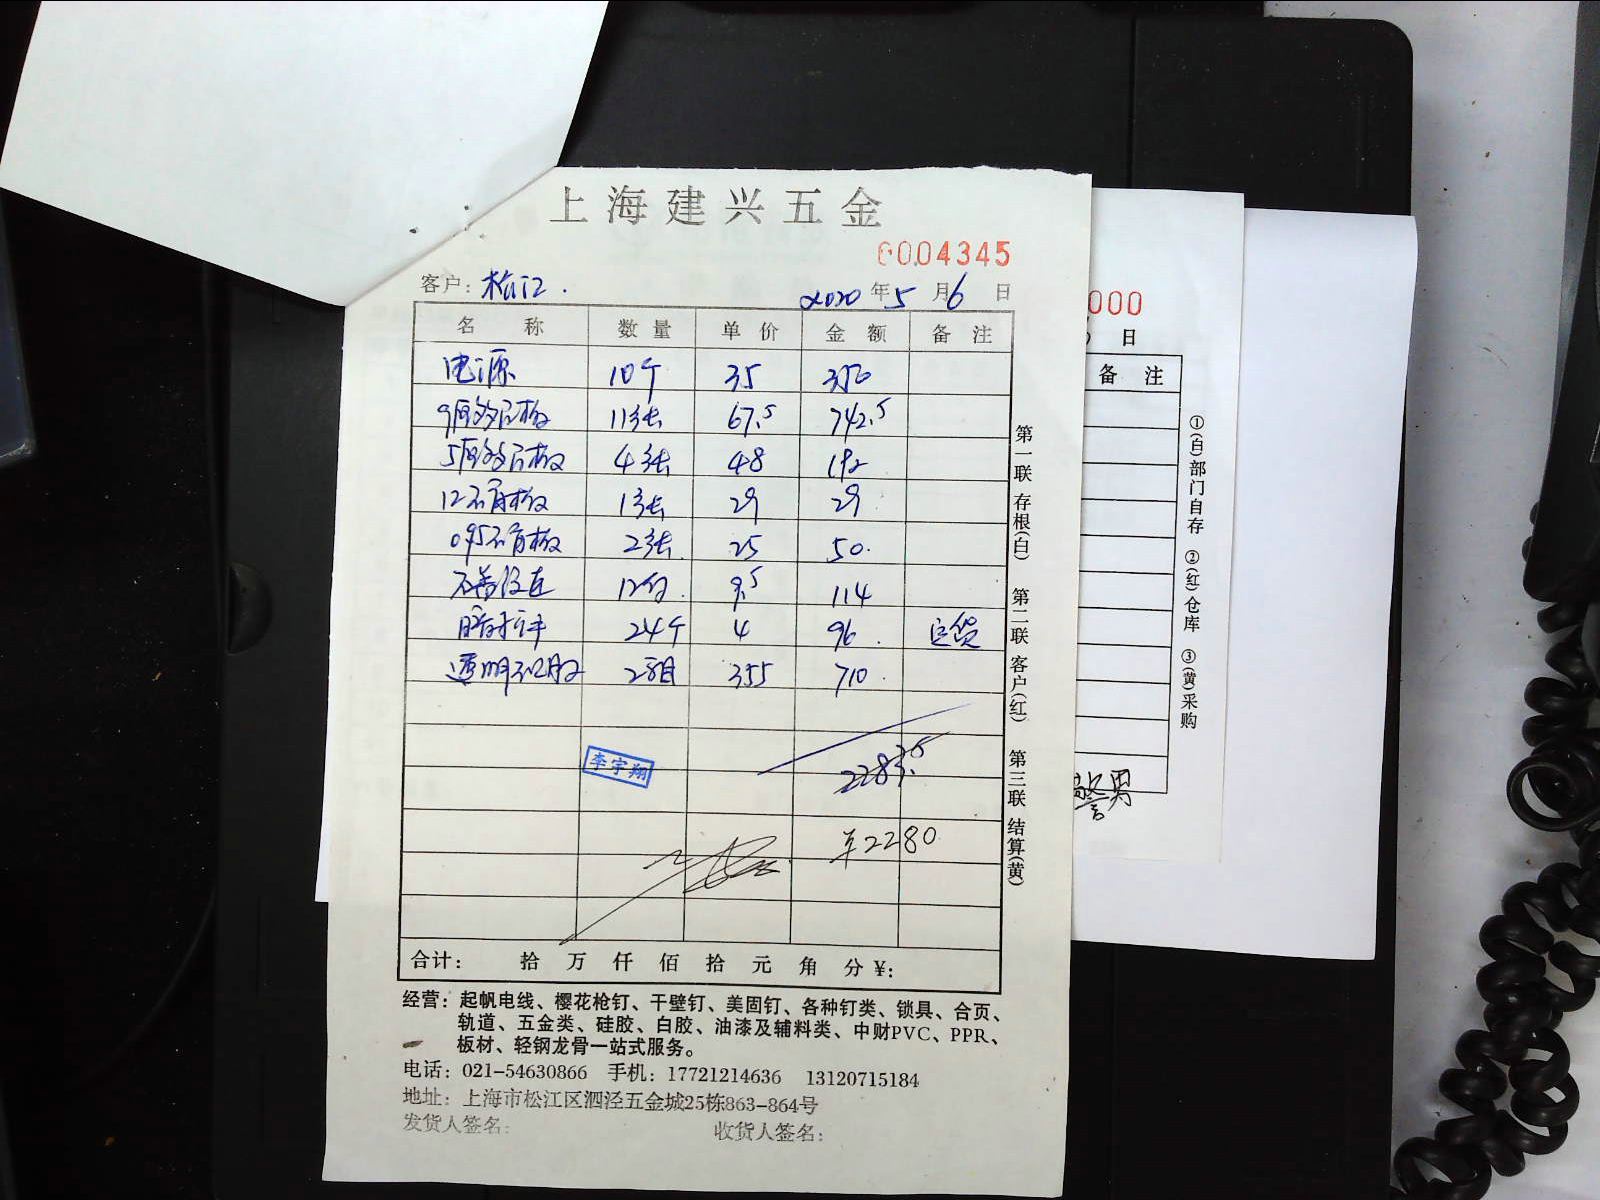 上海建兴五金
6004345
客户: 松江. 2020年5月6日
名称 数量 单价 金额 备注
电源 10个 35 350
9厘多层板 11张 67.5 742.5
5厘多层板 4张 48 192
12石膏板 1张 29 29
095石膏板 2张 25 50.
石膏 9.5 114
24个 4 96.
透明 2 355 710.
李宇翔
2283.5
¥2280
合计: 拾 万 仟 佰 拾 元 角 分 ¥:
第一联存根(白) 第二联客户(红) 第三联结算(黄)
经营: 起帆电线、樱花枪钉、干壁钉、美固钉、各种钉类、锁具、合页、
轨道、五金类、硅胶、白胶、油漆及辅料类、中财PVC、PPR、
板材、轻钢龙骨一站式服务。
电话: 021-54630866 手机: 17721214636 13120715184
地址: 上海市松江区泗泾五金城25栋863-864号
发货人签名: 收货人签名:
000
日
备注
①(白)部门自存 ②(红)仓库 ③(黄)采购